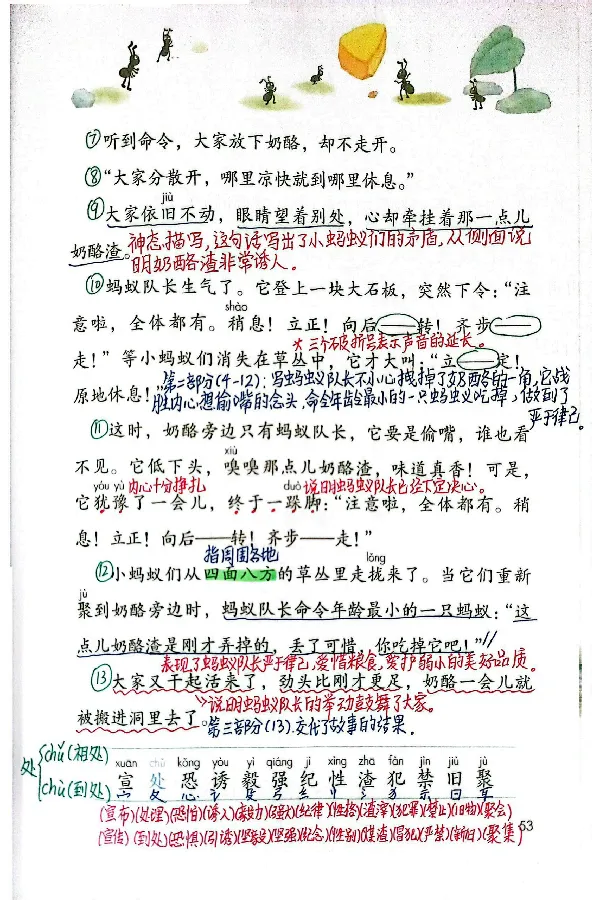 ⑦听到命令，大家放下奶酪，却不走开。
⑧“大家分散开，哪里凉快就到哪里休息。”
jiù
⑨大家依旧不动，眼睛望着别处，心却牵挂着那一点儿
奶酪渣。神态描写，这句话写出了小蚂蚁们的矛盾，从侧面说
明奶酪渣非常诱人。
⑩蚂蚁队长生气了。它登上一块大石板，突然下令：“注
shào
意啦，全体都有。稍息！立正！向后——转！齐步——
*三个破折号表示声音的延长。
走！”等小蚂蚁们消失在草丛中，它才大叫：“立——定！
原地休息！”第二部分(4-12)：写蚂蚁队长不小心拽掉了奶酪的一角，它战
胜内心想偷嘴的念头，命令年龄最小的一只蚂蚁吃掉，做到了
严于律己。
⑪这时，奶酪旁边只有蚂蚁队长，它要是偷嘴，谁也看
xiù
不见。它低下头，嗅嗅那点儿奶酪渣，味道真香！可是，
yóu yù 内心十分挣扎 duò 说明蚂蚁队长已经下定决心。
它犹豫了一会儿，终于一跺脚：“注意啦，全体都有。稍
息！立正！向后——转！齐步——走！”
指周围各地 lǒng
⑫小蚂蚁们从四面八方的草丛里走拢来了。当它们重新
jù
聚到奶酪旁边时，蚂蚁队长命令年龄最小的一只蚂蚁：“这
点儿奶酪渣是刚才弄掉的，丢了可惜，你吃掉它吧！”//
表现了蚂蚁队长严于律己，爱惜粮食，爱护弱小的美好品质。
⑬大家又干起活来了，劲头比刚才更足，奶酪一会儿就
说明蚂蚁队长的举动鼓舞了大家。
被搬进洞里去了。第三部分(13)：交代了故事的结果。
处 chǔ(相处) chù(到处)
xuān chǔ kǒng yòu yì qiáng jì xìng zhā fàn jìn jiù jù
宣 处 恐 诱 毅 强 纪 性 渣 犯 禁 旧 聚
(宣布)(处理)(恐怕)(诱人)(毅力)(强大)(纪律)(性格)(渣滓)(犯罪)(禁止)(旧物)(聚会)
(宣传)(到处)(恐惧)(引诱)(坚毅)(坚强)(纪念)(性别)(煤渣)(冒犯)(严禁)(新旧)(聚集)
53